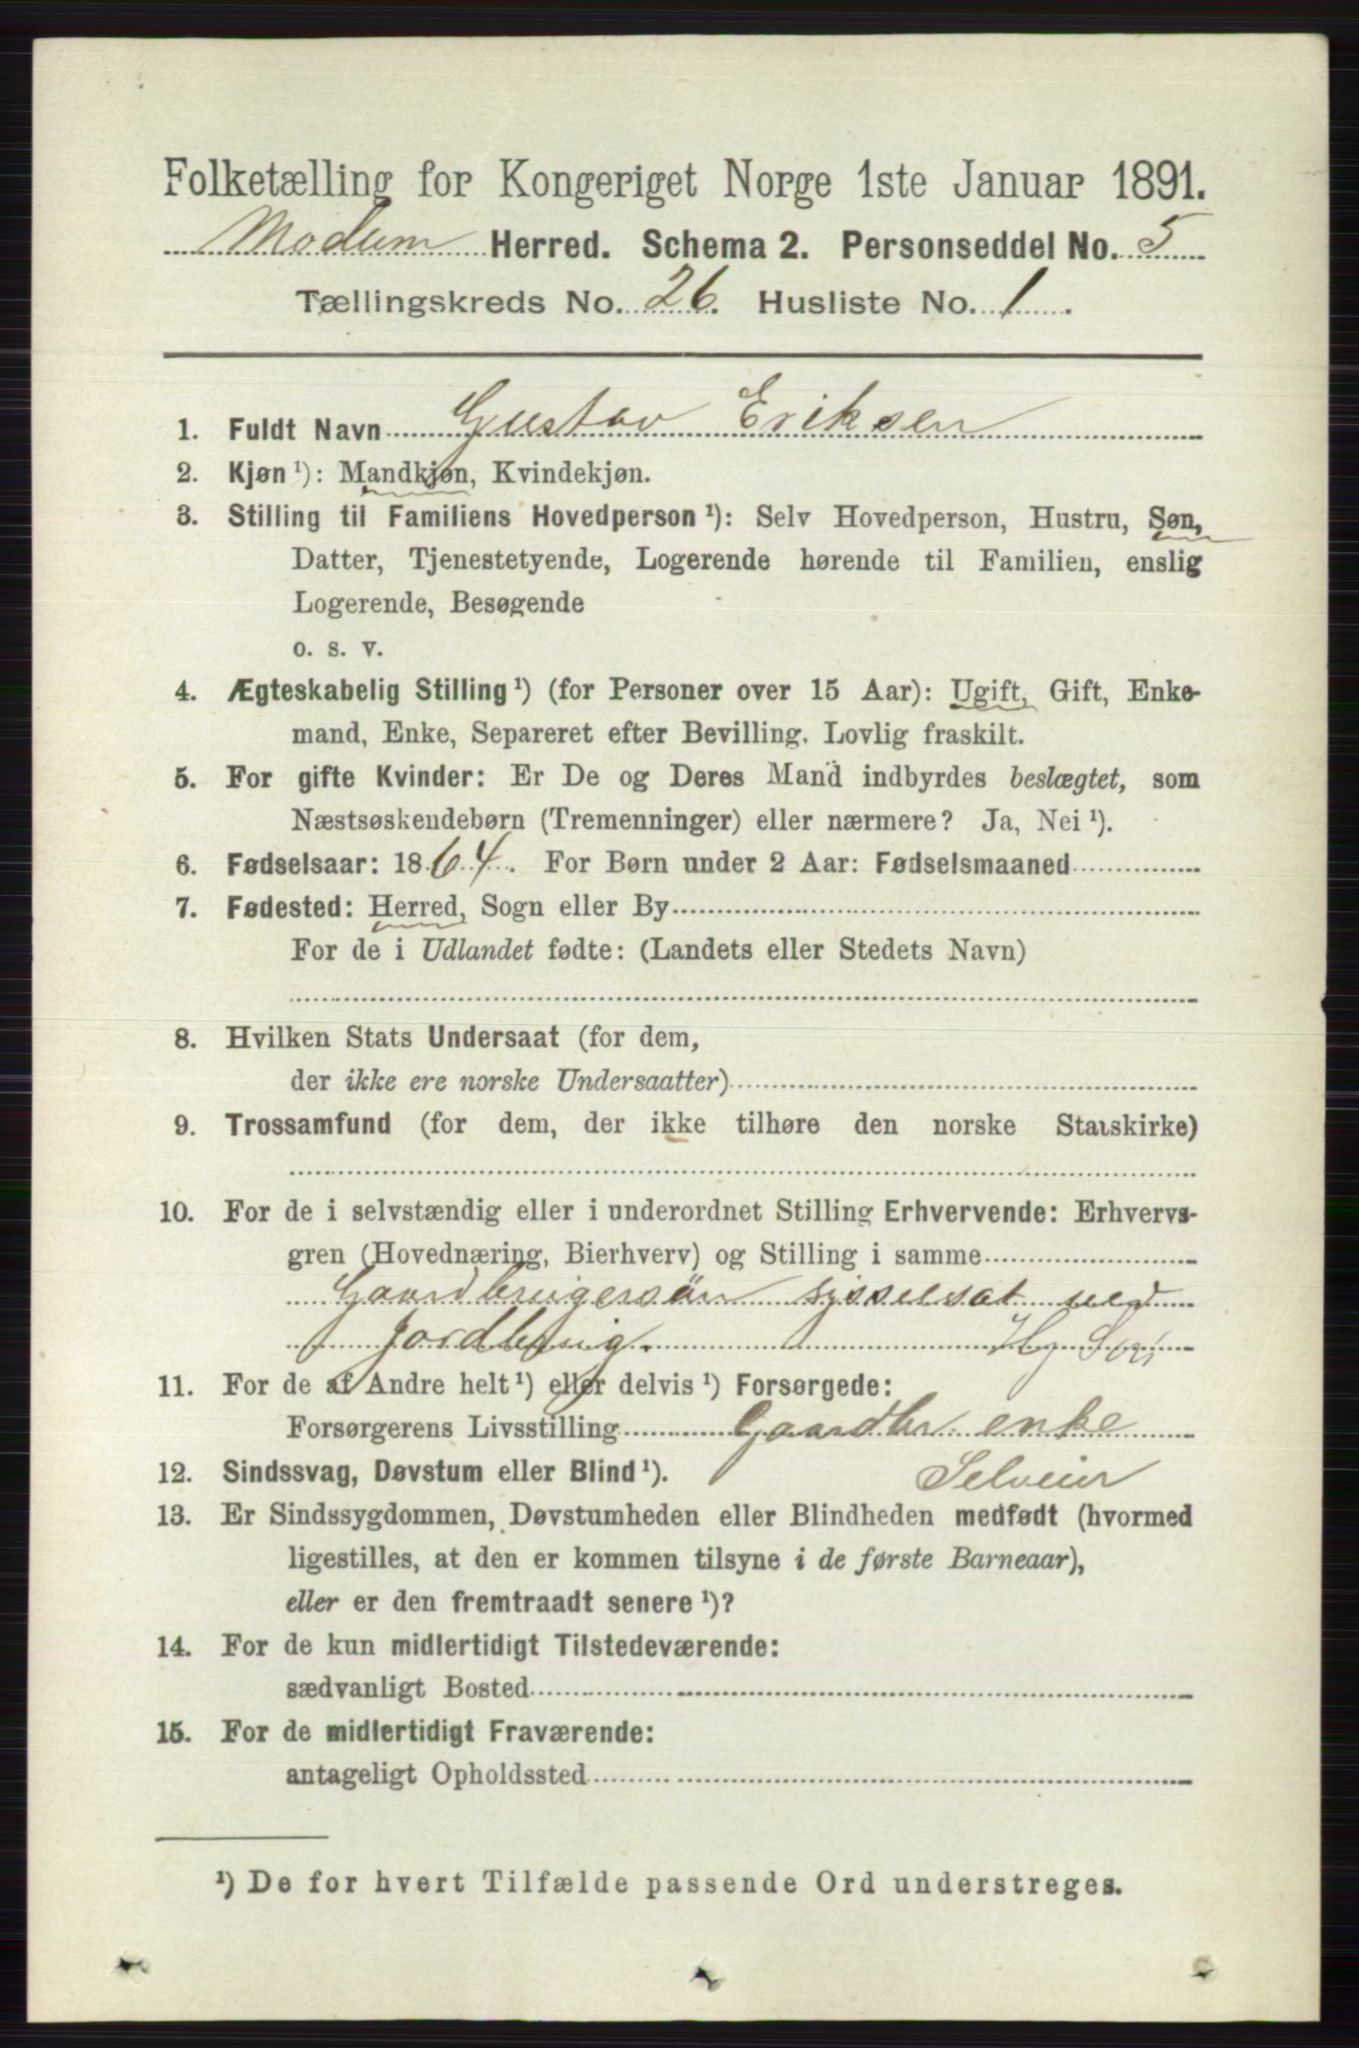 Folketælling for Kongeriget Norge 1ste Januar 1891.
Modum Herred. Schema 2. Personseddel No. 5
Tællingskreds No. 26. Husliste No. 1.
1. Fuldt Navn Gustav Eriksen
2. Kjøn ¹): Mandkjøn, Kvindekjøn.
3. Stilling til Familiens Hovedperson ¹): Selv Hovedperson, Hustru, Søn,
Datter, Tjenestetyende, Logerende hørende til Familien, enslig
Logerende, Besøgende
o. s. v.
4. Ægteskabelig Stilling ¹) (for Personer over 15 Aar): Ugift, Gift, Enke-
mand, Enke, Separeret efter Bevilling. Lovlig fraskilt.
5. For gifte Kvinder: Er De og Deres Mand indbyrdes beslægtet, som
Næstsøskendebørn (Tremenninger) eller nærmere? Ja, Nei ¹).
6. Fødselsaar: 1864. For Børn under 2 Aar: Fødselsmaaned
7. Fødested: Herred, Sogn eller By
For de i Udlandet fødte: (Landets eller Stedets Navn)
8. Hvilken Stats Undersaat (for dem,
der ikke ere norske Undersaatter)
9. Trossamfund (for dem, der ikke tilhøre den norske Statskirke)
10. For de i selvstændig eller i underordnet Stilling Erhvervende: Erhvervs-
gren (Hovednæring, Bierhverv) og Stilling i samme
Gaardbrugersøn sysselsat ved
Jordbrug.
11. For de af Andre helt ¹) eller delvis ¹) Forsørgede:
Forsørgerens Livsstilling Gaardbr enke
12. Sindssvag, Døvstum eller Blind ¹). Selveier
13. Er Sindssygdommen, Døvstumheden eller Blindheden medfødt (hvormed
ligestilles, at den er kommen tilsyne i de første Barneaar),
eller er den fremtraadt senere ¹)?
14. For de kun midlertidigt Tilstedeværende:
sædvanligt Bosted
15. For de midlertidigt Fraværende:
antageligt Opholdssted
¹) De for hvert Tilfælde passende Ord understreges.